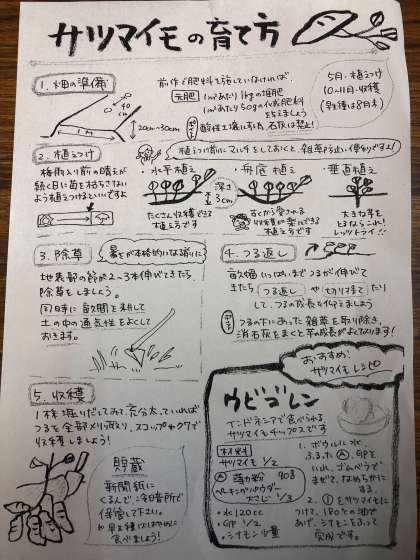 サツマイモの育て方
1. 畑の準備
前作で肥料を施していなければ
元肥
1m²あたり1kgの堆肥
1m²あたり50gの化成肥料
をまきましょう
酸性土壌にする為 石灰は禁止!
5月・植えつけ
10〜11月・収穫
(早生種は8月末)
40cm
1m
20cm〜30cm
2. 植えつけ
植えつけ前にマルチをしておくと、雑草防止に便利ですよ!
梅雨入り前の晴天が
続く日に苗を枯らさない
よう植えつけるといいですよ
・水平植え
・舟底植え
・垂直植え
深さ
3cm
たくさん収穫できる
植え方です
すぐから愛される
収穫が楽しめる
植え方です
大きな芋を
とるならこれ!
レッツトライ!!
3. 除草
暑さが本格的になる前に!
地表部の節が2〜3本伸びてきたら、
除草をしましょう。
同時に畝間を耕して
土の中の通気性をよくして
おきます。
4. つる返し
畝畑いっぱいまでつるが伸びて
きたら つる返し や 切りすて たり
して、つるの成長を抑えましょう
つるの下にあった雑草を取り除き、
消石灰をまくと芋の成長がよくなります!
おすすめ!
サツマイモレシピ
5. 収穫
1株掘りだしてみて、充分太っていれば
つるを全部メリ取り、スコップやクワで
収穫しましょう!
貯蔵
新聞紙に
くるんで冷暗所で
保管して下さい。
早生種ははやめに
食べましょう!
ウビゴレン
インドネシアで食べられる
サツマイモチップスです
材料
サツマイモ 1/2
Ⓐ 薄力粉 90g
ベーキングパウダー
大さじ 1/3
・水 120cc
・卵 1/2
・シナモン少量
1. ボウルに水
ふるったⒶ、卵を
いれ、ゴムベラで
まぜて、なめらかにする
2. ①をサツマイモに
つけて、180℃の油で
あげ、シナモンをふって
完成です。